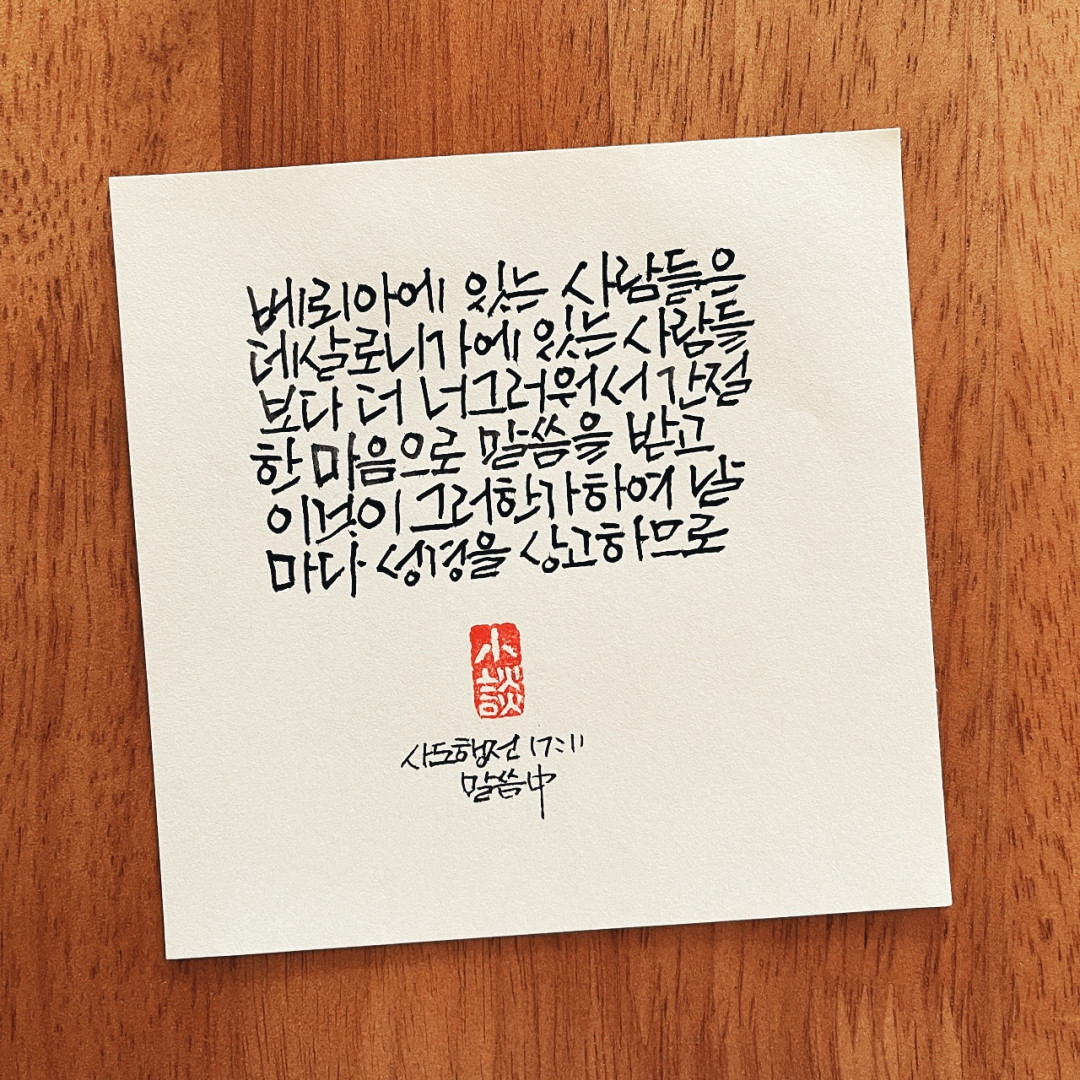 베뢰아에 있는 사람들은
데살로니가에 있는 사람들
보다 더 너그러워서 간절
한 마음으로 말씀을 받고
이것이 그러한가하여 날
마다 성경을 상고하므로
小
談
사도행전 17:11
말씀中